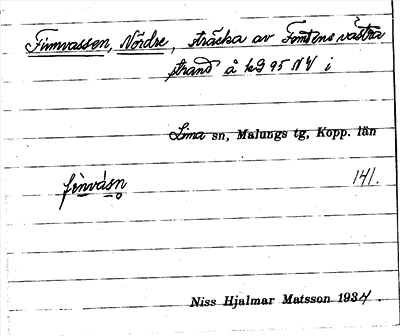 Finnvassen, Nördre, sträcka av Femtens västra
strand å kg 95 NV i
Lima sn, Malungs tg, Kopp. län
finvásn 141.
Niss Hjalmar Matsson 1934.